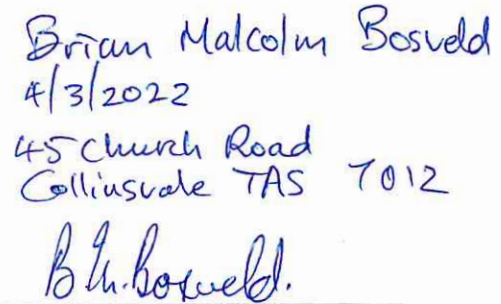 Brian Malcolm Bosveld
4/3/2022
45 Church Road
Collinsvale TAS 7012
B.M. Bosveld.